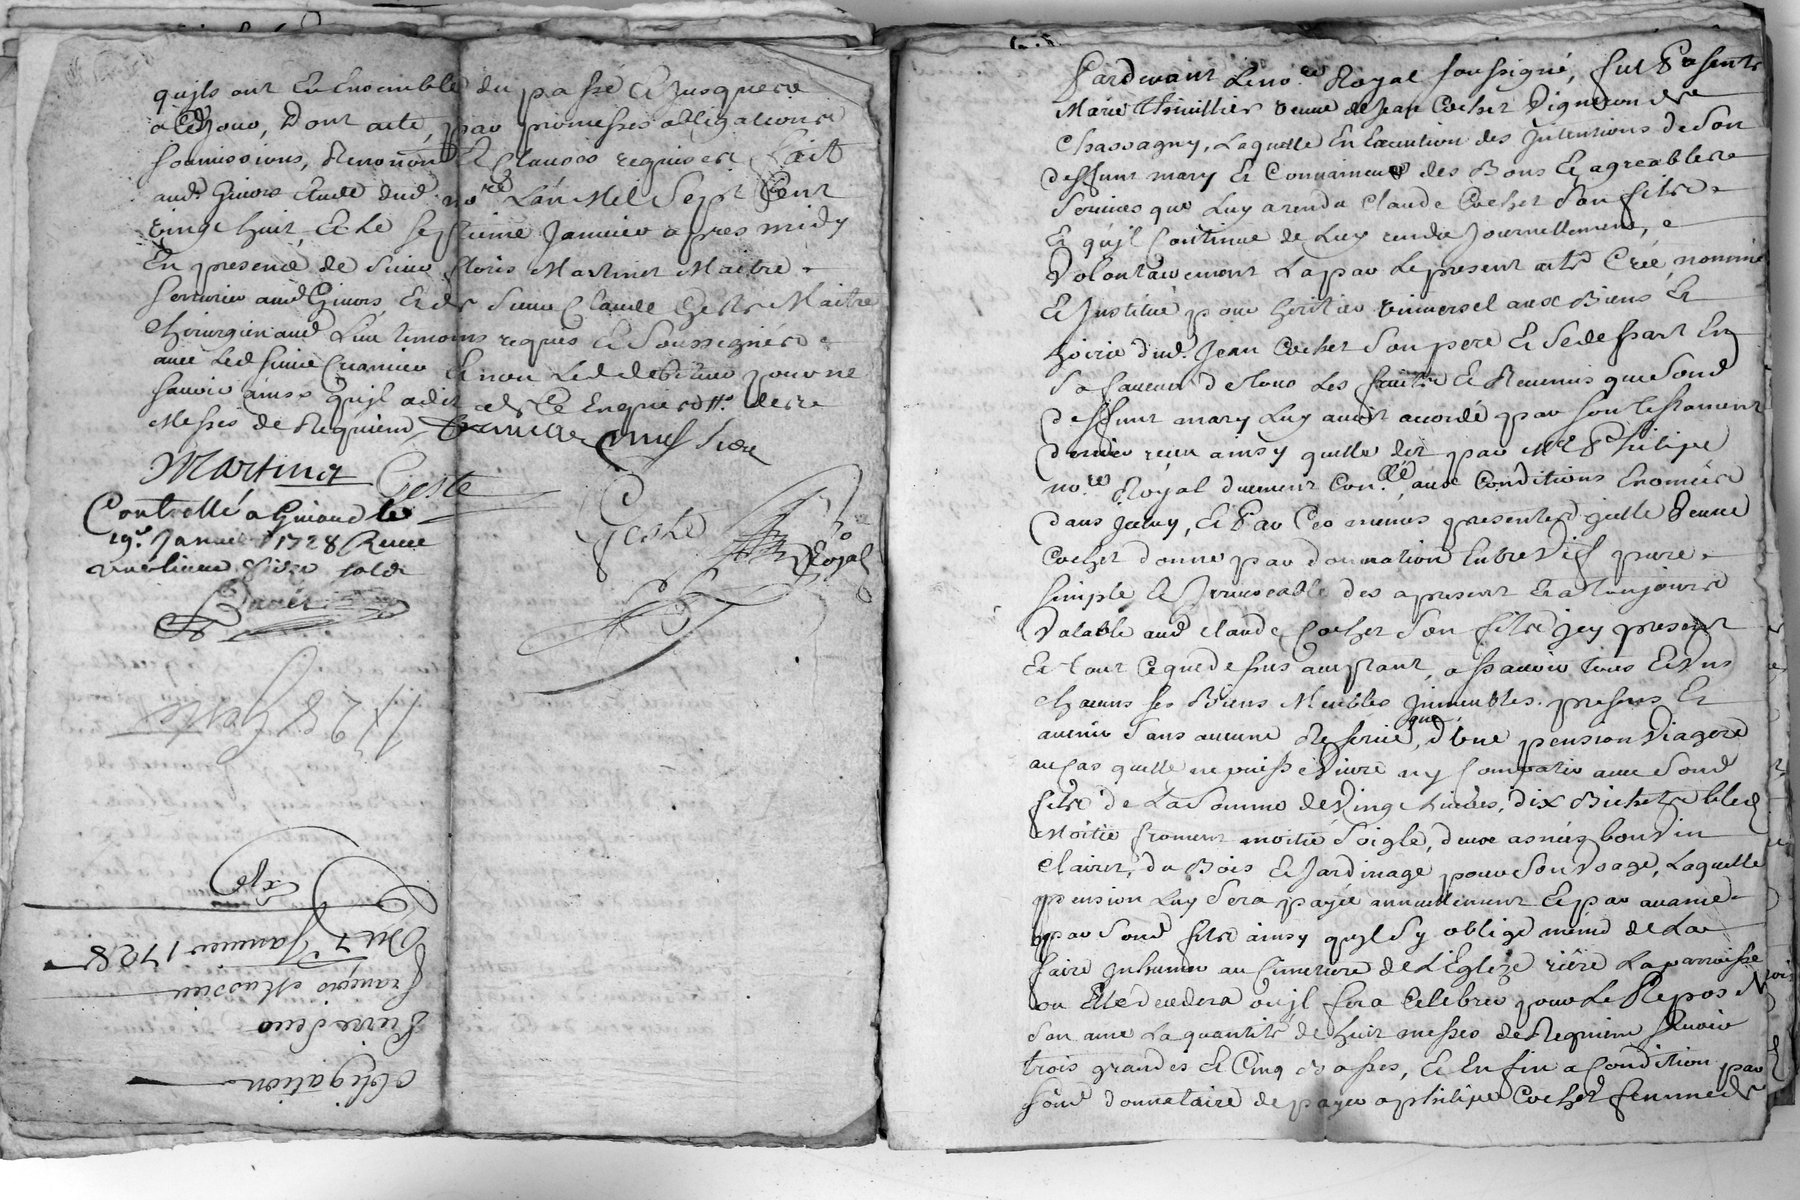 quils ont Eu Ensemble du passé Et Jusques
a Cejour, Dont acte, par promesses obligations
soumissions, Renonon Et Clauses requises Fait
aud Givors Etude dud. nore L'an Mil Sept Cent
vingt huit Et Le septieme Janvier apres midy
En presence de sieur Martinet Maitre
serrurier aud Givors Et de sieur Claude Geste Maitre
Chirurgien aud Lieu temoins requis Et Soussignés
avec Led sieur Et non Led debiteur pour ne
savoir ainsi quil a dit de Ce Enquis
Messes de Requiem
Martinet Geste
Controllé a Givors le
19e Janvier 1728 Receu
une livre solz
Geste
Royal
1728
Expé
Du 7 Janvier 1728
françois
obligation
Pardevant Le nore Royal soussigné, fut Presente
Marie Thuillier veuve de Jean Cochet Vigneron de
Chassagny, Laquelle En Execution des Intentions de Son
deffunt mary Et Convaincue des Bons Et agreables
services que Luy a rendu Claude Cochet Son fils
Et qu'jl Continue de Luy rendre Journellement,
Volontairement La par Le present acte Créé, nommé
Et Institué pour heritier universel aux Biens Et
hoirie dud. Jean Cochet Son pere Et Se depart En
Sa faveur de tous Les fruits Et Revenus que Sond
deffunt mary Luy avoit accordé par Son testament
dernier receu ainsy quelle dit par Me Philipe
nore Royal duement Conllé, aux Conditions Enoncées
dans jceluy, Et Par Ces mesmes presentes jcelle Veuve
Cochet donne par donnation Entre Vifs pure
simple Et Irrevocable des apresent Et a toujours
Valable aud Claude Cochet Son fils jcy present
Et tout Ce que dessus acceptant, a scavoir tous Et Uns
chacuns ses Biens Meubles Immeubles. presens Et
avenir Sans aucune Reserve que, d'Une pension Viagere
au Cas quelle ne puisse Vivre ny Compatir avec Sond
fils de La Somme de Vingt Livres, dix Bichets bled
Moitié froment moitié Soigle, deux asnées bon Vin
Clairet, du Bois Et Jardinage pour Son Usage, Laquelle
pension Luy Sera payée annuellement Et par avance
par Sond fils ainsy quil Sy oblige même de La
faire Inhumer au Cimetiere de L'Eglize riere La parroisse
ou Elle decedera quil fera Celebrer pour Le Repos de
Son ame La quantité de huit messes de Requiem scavoir
trois grandes Et Cinq Basses, Et En fin a Condition par
Sond donnataire de payer a philipe Cochet femme de